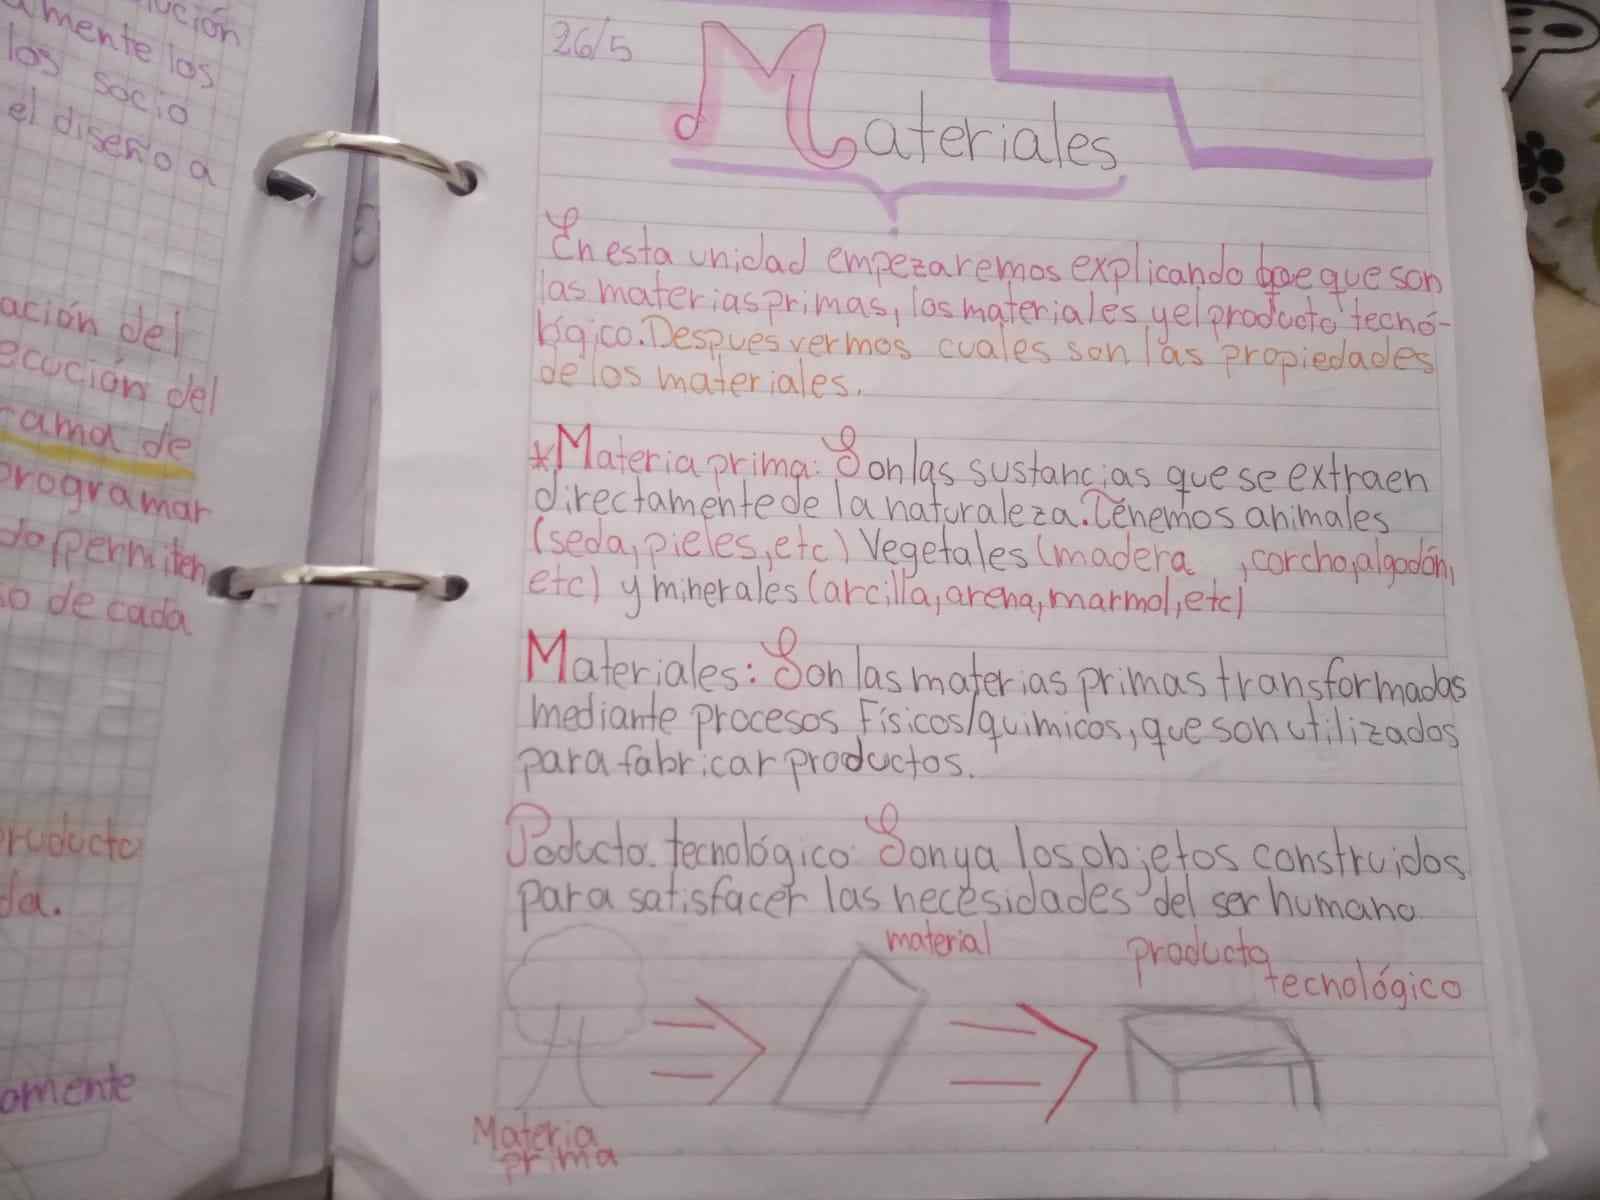 ución
amente los
los socio
el diseño a
ación del
ecución del
rama de
programar
do permiten
so de cada
producto
da.
omente
26/5
Materiales
En esta unidad empezaremos explicando que son
las materias primas, los materiales y el producto tecno-
lógico. Despues vermos cuales son las propiedades
de los materiales.
*Materia prima: Son las sustancias que se extraen
directamente de la naturaleza. Tenemos animales
(seda, pieles, etc) Vegetales (madera , corcho, algodón,
etc) y minerales (arcilla, arena, marmol, etc)
Materiales: Son las materias primas transformadas
mediante procesos Físicos/quimicos, que son utilizados
para fabricar productos.
Poducto tecnológico: Son ya los objetos construidos
para satisfacer las necesidades del ser humano
material
producto
tecnológico
Materia
prima